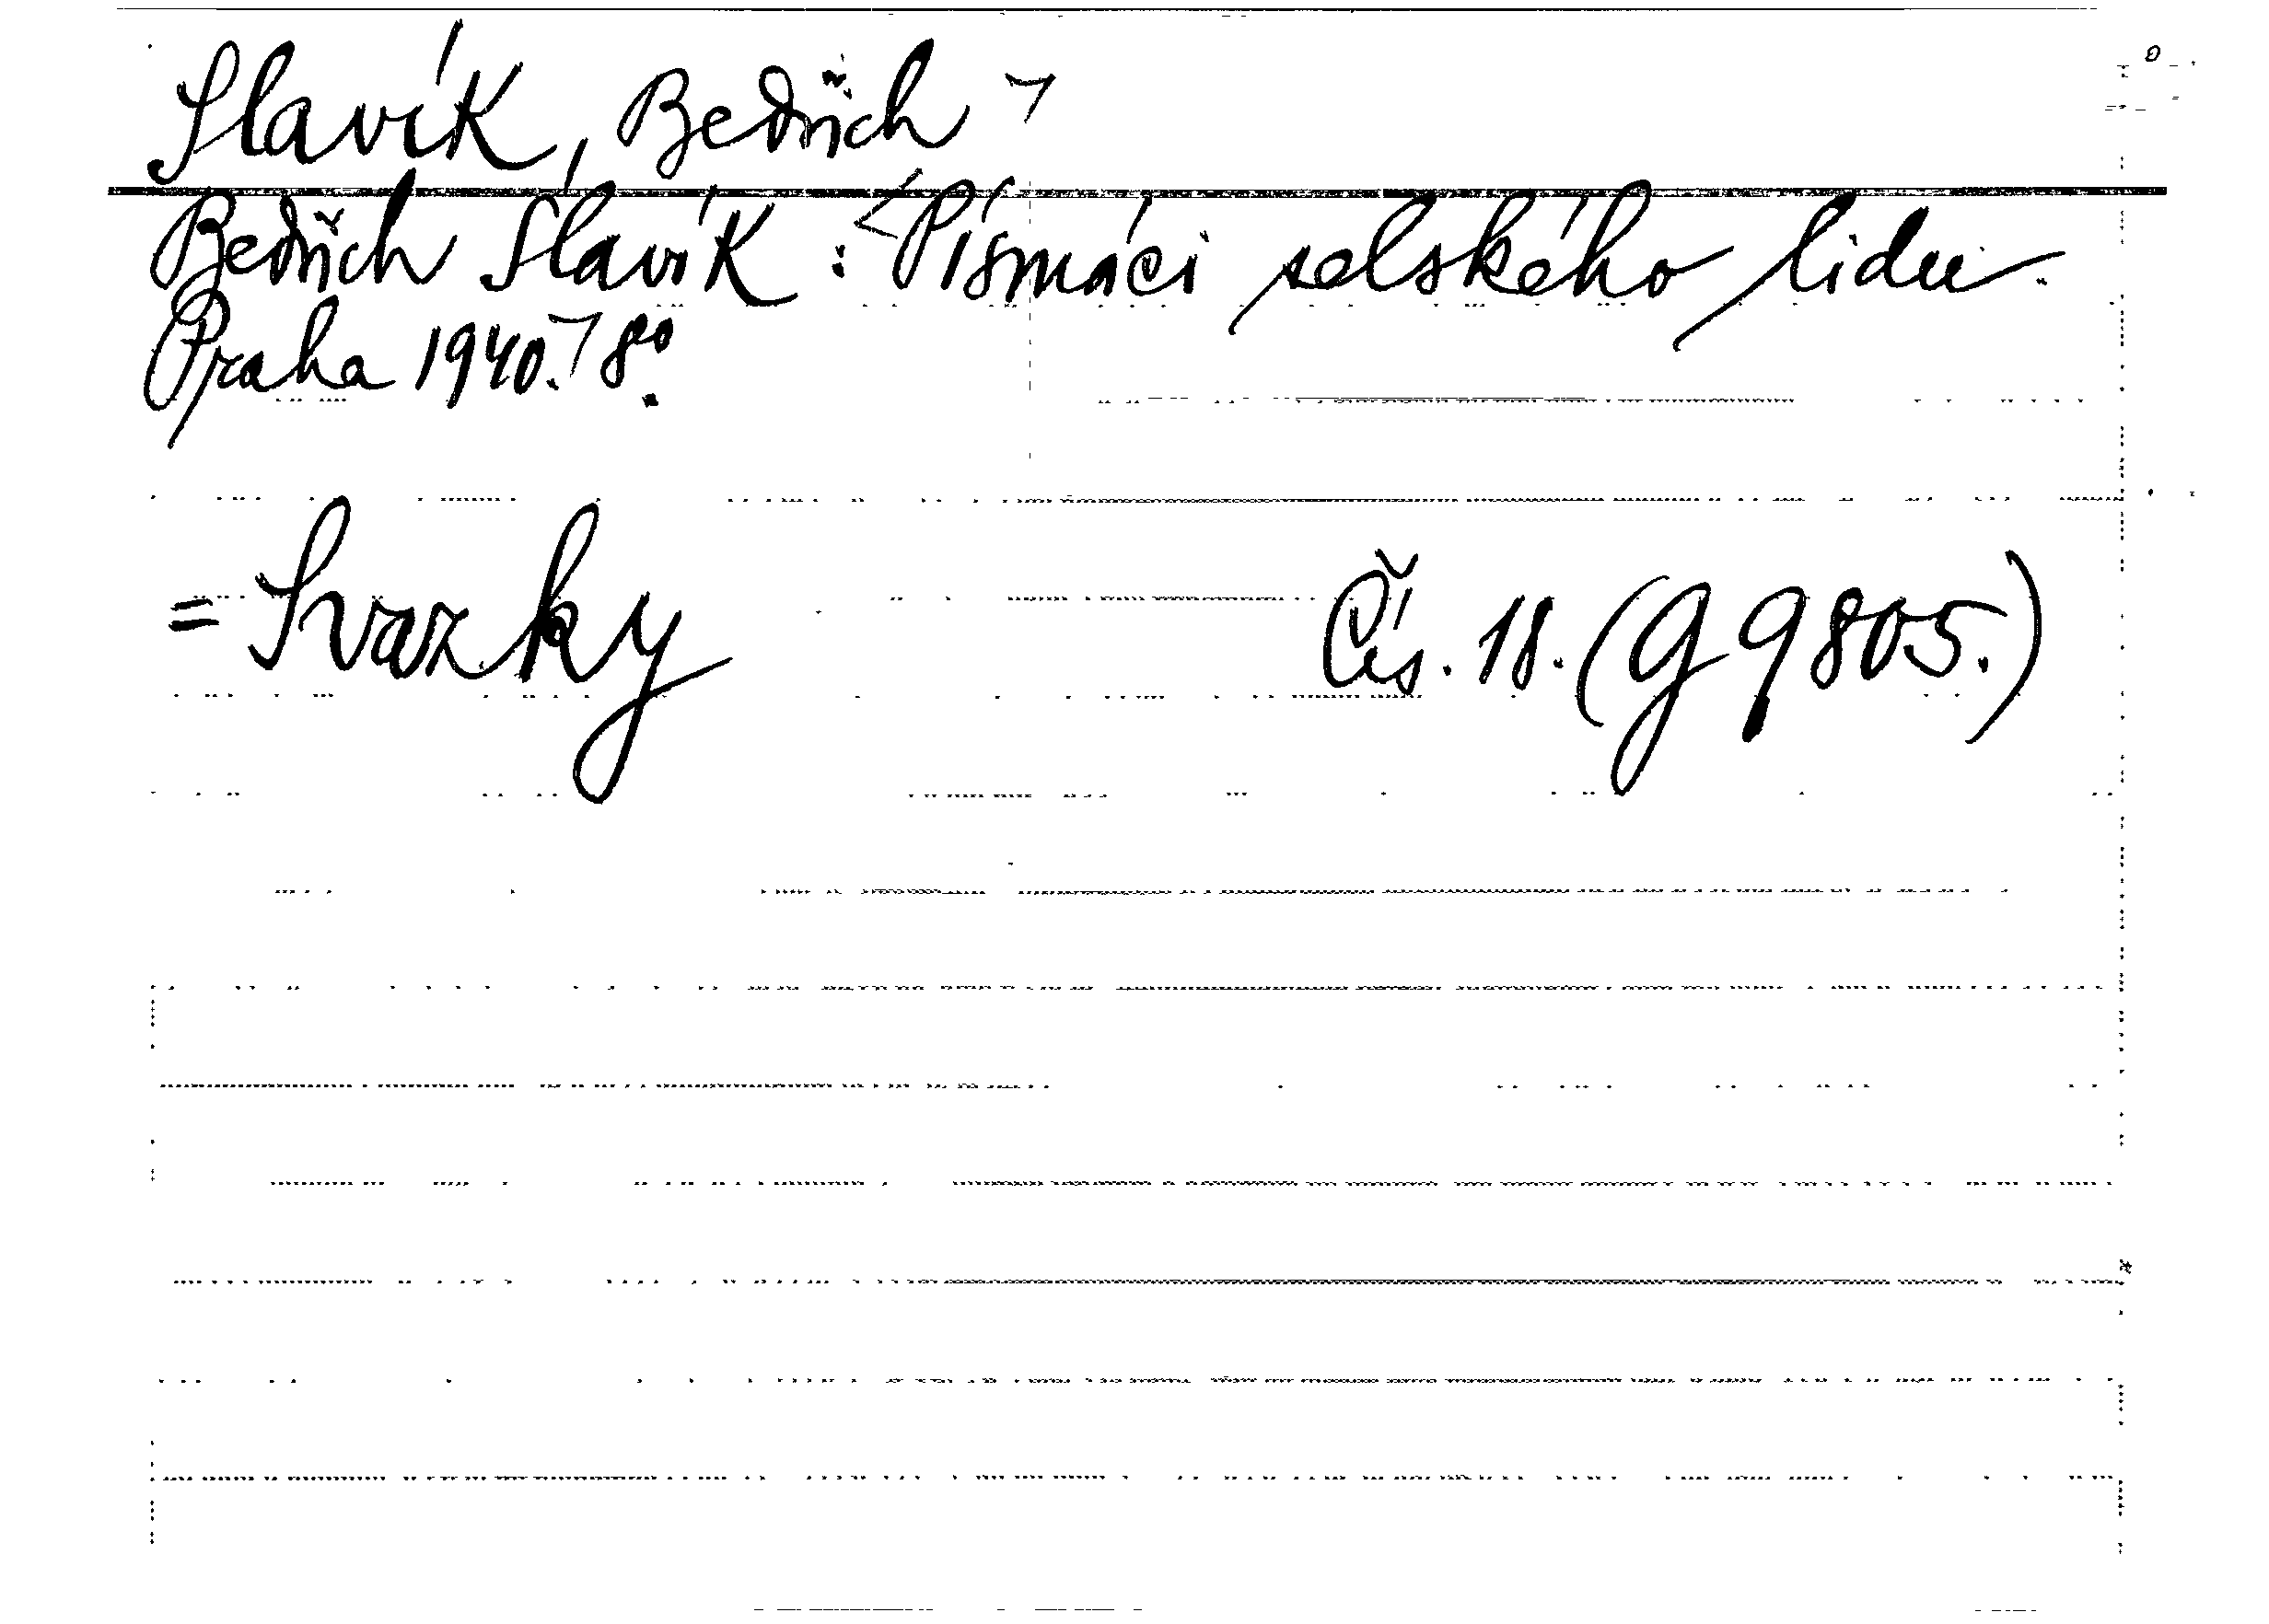 Slavík, Bedřich ¬
Bedřich Slavík : <Písmáci selského lidu.
Praha 1940.¬ 8º.
= Svazky Čís. 18. (G 9805.)